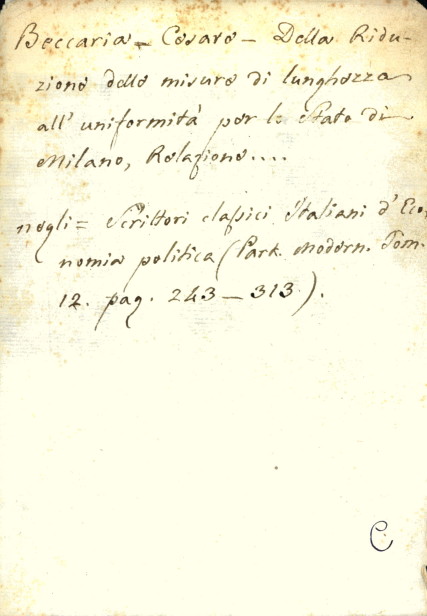 Beccaria = Cesare – Della Ridu-
zione delle misure di lunghezza
all' uniformità per lo Stato di
Milano, Relazione....
negli = Scrittori classici Italiani d' Eco-
nomia politica (Part. Modern. Tom.
12. pag. 243 – 313).
C